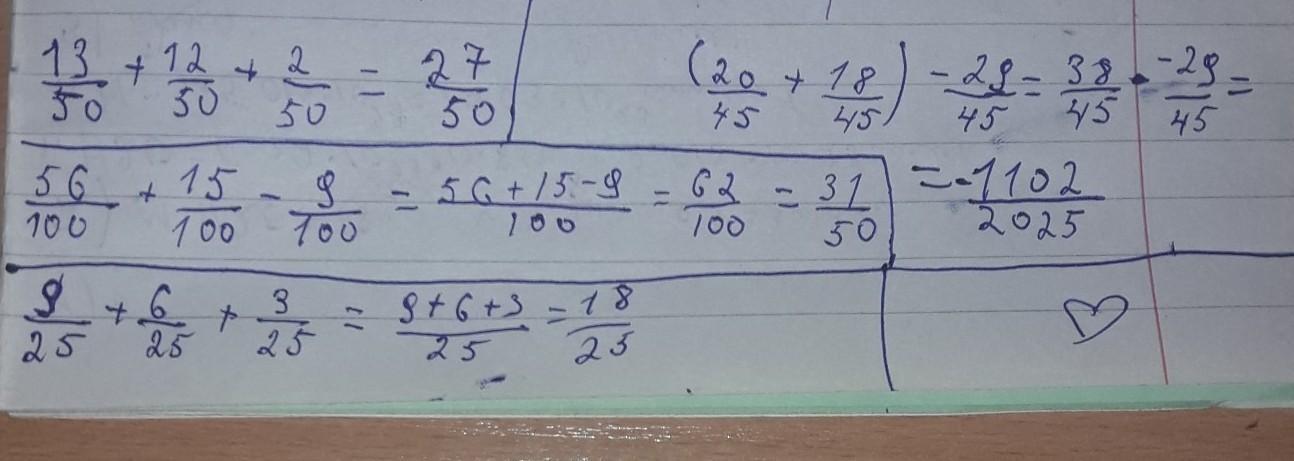 13/50 + 12/50 + 2/50 = 27/50
(20/45 + 18/45) - 29/45 = 38/45 · -29/45 =
= -1102/2025
56/100 + 15/100 - 9/100 = 56+15-9/100 = 62/100 = 31/50
9/25 + 6/25 + 3/25 = 9+6+3/25 = 18/25